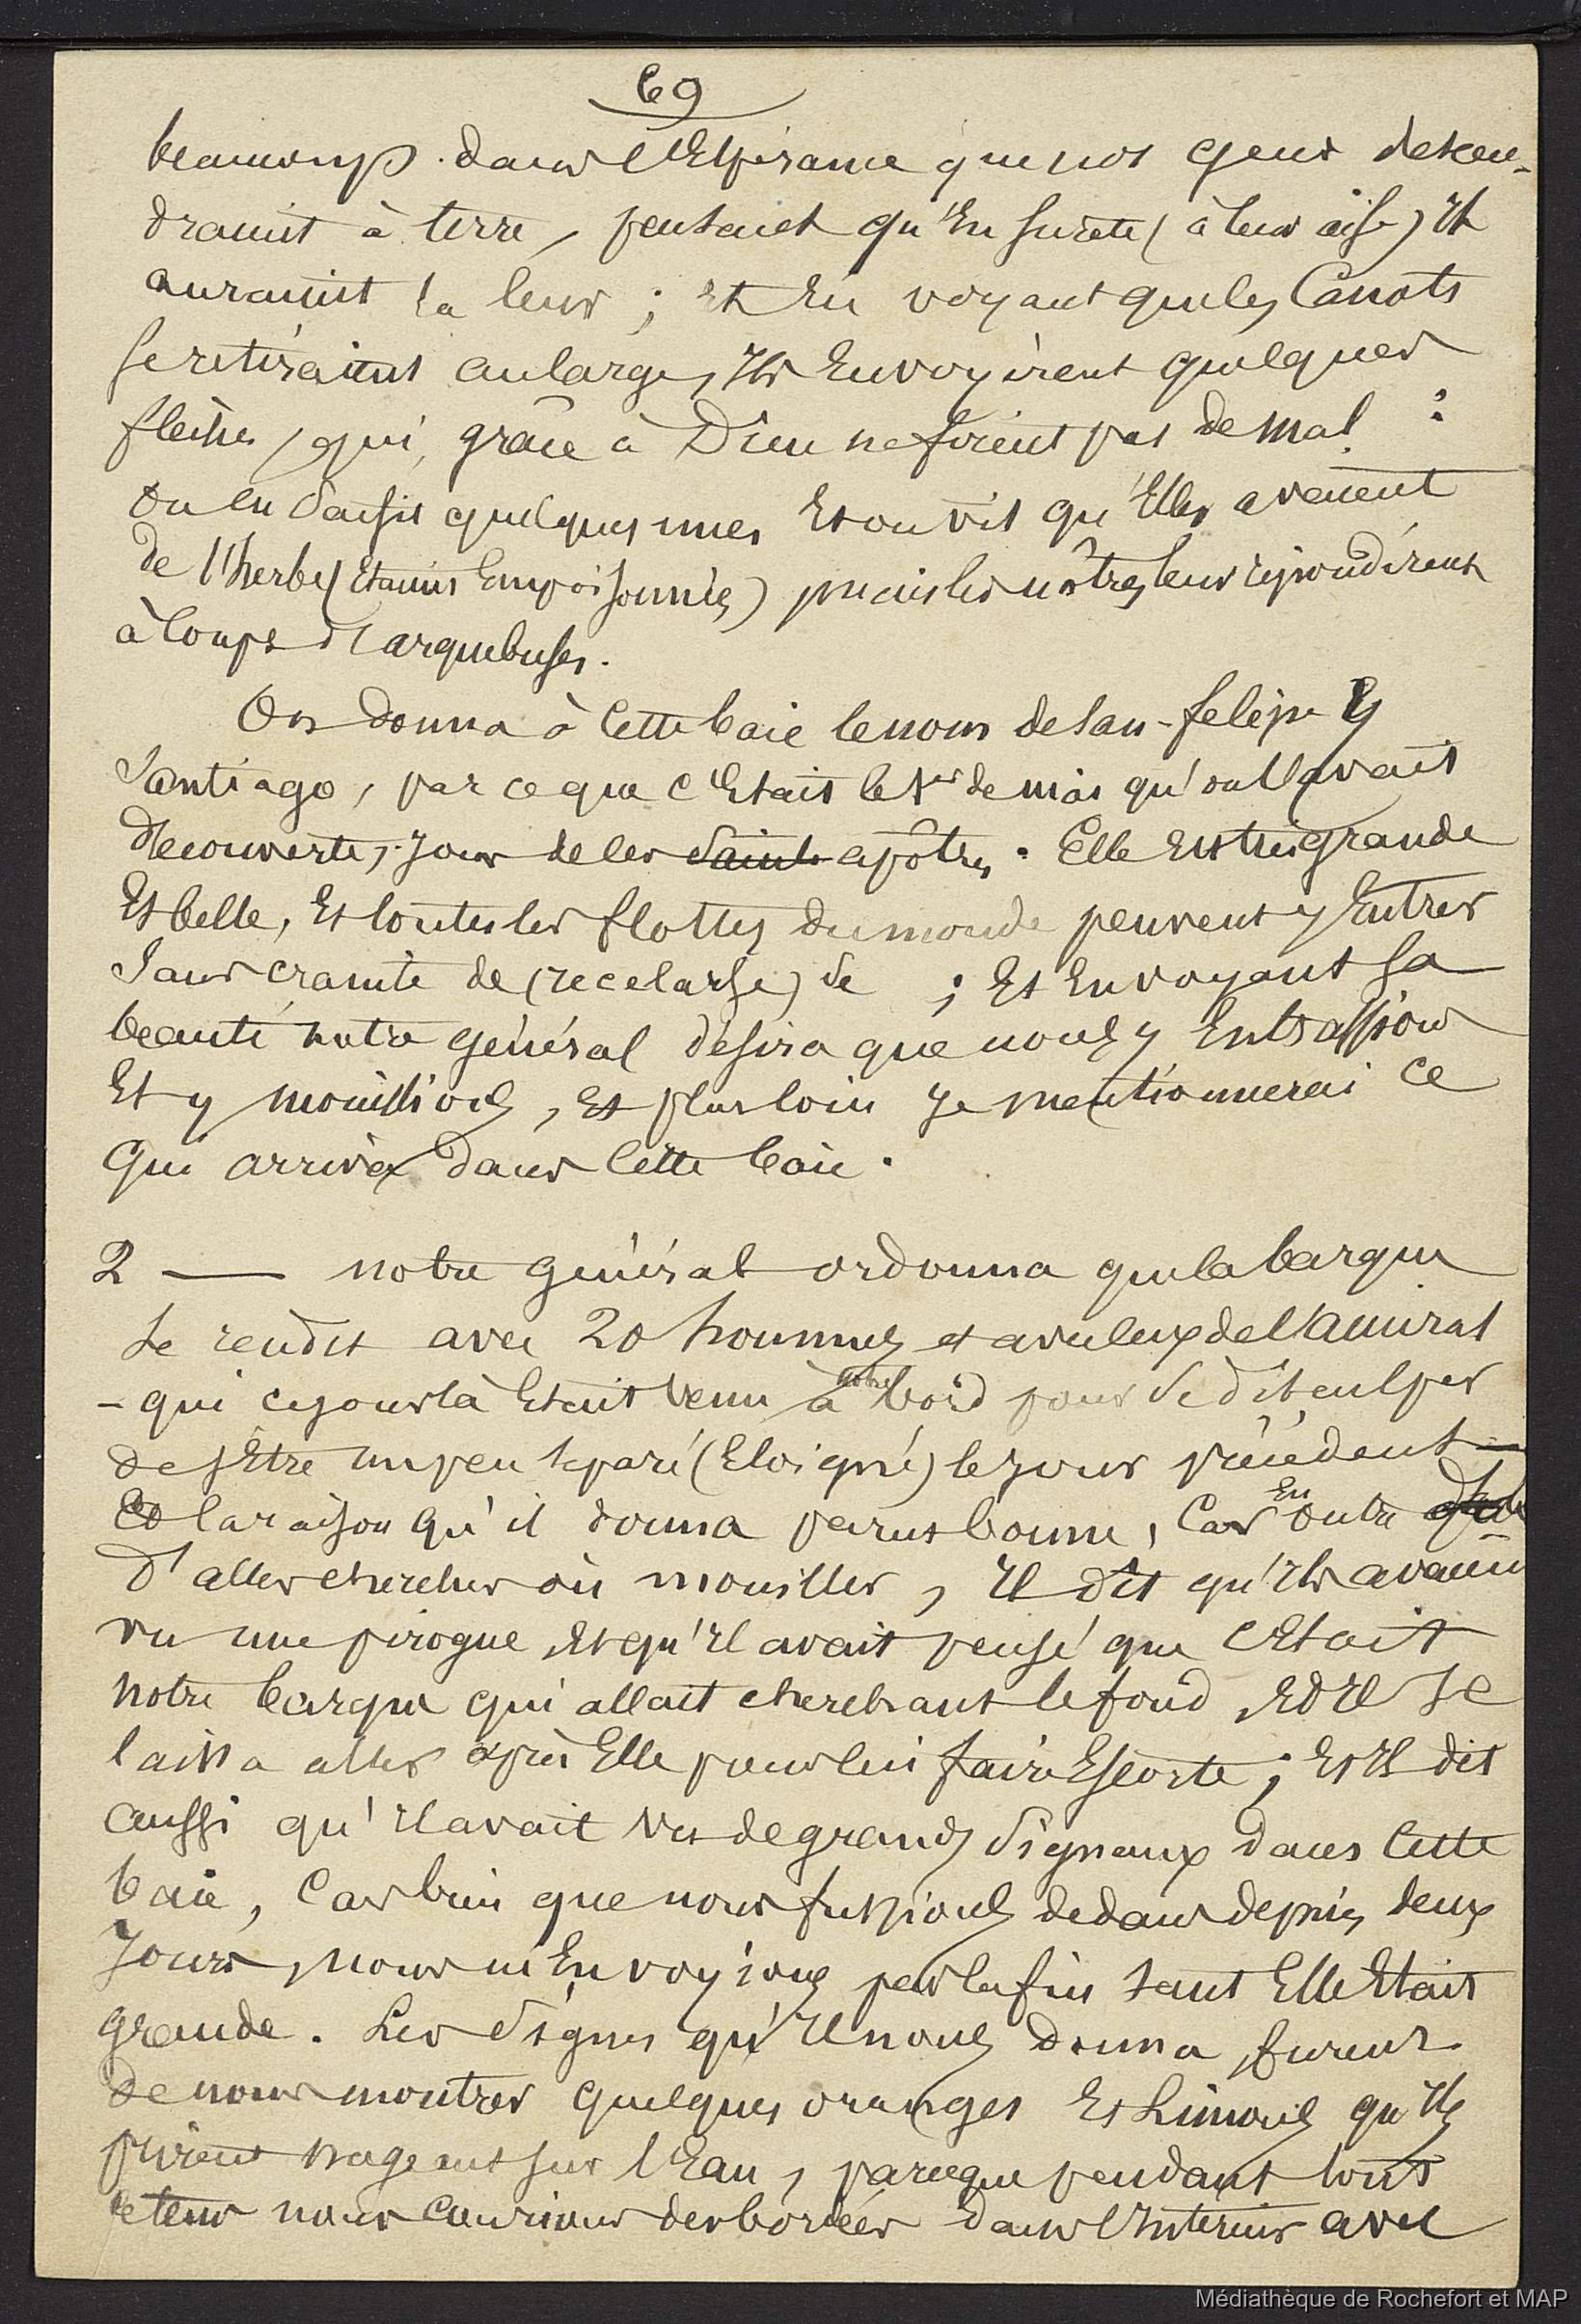 69
beaucoup. dans l'Espérance que nos gens descen-
draient à terre, pensant qu'En sureté (à leur aise) Ils
auraient la leur ; Et En voyant que les Canots
se retiraient au large, Ils Envoyèrent quelques
flèches, qui, grâce à Dieu ne firent pas de mal :
On en saisit quelques unes Et on vit qu'Elles avaient
de l'herbe (Etaient Empoisonnées) mais les nôtres leur répondirent
à Coups d'arquebuses.
On donna à Cette baie le nom de San-felipe y
Santiago, par ce que c'Etait le 1er de mai qu'on l'avait
découverte, jour de les Saints apôtres. Elle Est très grande
Et belle, Et toutes les flottes du monde peuvent y Entrer
Sans crainte de (recelarse) de ; Et En voyant sa
beauté notre général désira que nous y Entrassions
Et y mouillions, Et plus loin Je mentionnerai Ce
Qui arriva dans Cette baie.
2 — notre général ordonna que la barque
se rendit avec 20 hommes et avec ceux de l'amiral
- qui ce jour là Etait venu à notre bord pour se disculper
de s'Etre un peu séparé (Eloigné) le jour précédent —
Et la raison qu'il donna parut bonne, Car En outre
d'aller chercher où mouiller, Il dit qu'Ils avaient
vu une pirogue, Et qu'Il avait pensé que c'Etait
notre barque qui allait cherchant le fond, Et Il se
laissa aller après Elle pour lui faire Escorte ; Et Il dit
aussi qu'Il avait vu de grands Signaux dans Cette
baie, Car bien que nous fussions dedans depuis deux
Jours, nous n'En voyions pas la fin tant Elle Etait
grande. Les Signes qu'Il nous donna, furent
de nous montrer quelques oranges Et Limons qu'Ils
prirent nageant sur l'Eau, parceque pendant tout
ce tems nous Courions des bordées dans l'Interieur avec
Médiathèque de Rochefort et MAP